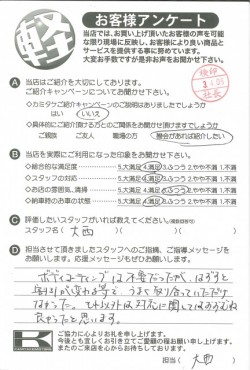 軽
お客様アンケート
当店では、お買い上げ頂いたお客様の声を可能
な限り現場に反映し、お客様により良い商品と
サービスを提供する事に努めています。
大変お手数ですが是非お声をお聞かせ下さい。
A 当店はご紹介を大切にしております。
ご紹介キャンペーンについてお聞かせ下さい。
◇カミタケご紹介キャンペーンのご説明はありましたでしょうか
はい いいえ
◇具体的にご紹介頂ける方とのご関係をお聞かせ頂けますでしょうか
ご親族 ご友人 職場の方 機会があれば紹介したい
B 当店を実際にご利用になった印象をお聞かせ下さい。
◇総合的な満足度 5.大満足 4.満足 3.ふつう 2.やや不満 1.不満
◇スタッフの対応 5.大満足 4.満足 3.ふつう 2.やや不満 1.不満
◇お店の雰囲気、清掃 5.大満足 4.満足 3.ふつう 2.やや不満 1.不満
◇納車時のお車の状態 5.大満足 4.満足 3.ふつう 2.やや不満 1.不満
C 評価したいスタッフがいれば教えてください。
スタッフ名( 大西 )
D 担当させて頂きましたスタッフへのご指摘、ご指導メッセージを
お願いします。応援メッセージもぜひお願いします。
ボディコーティングは不要だったが、はずすと
割引が変わる等で、うまく取り合っていただけ
なかった。それ以外は対応に関してはおおむね
良かったと思います。
K
ご協力に心よりお礼を申し上げます。
今後とも宜しくお引き立てご愛顧の程お願い申し上げます。
またのご来店を心からお待ちしております。
担当( 大西 )